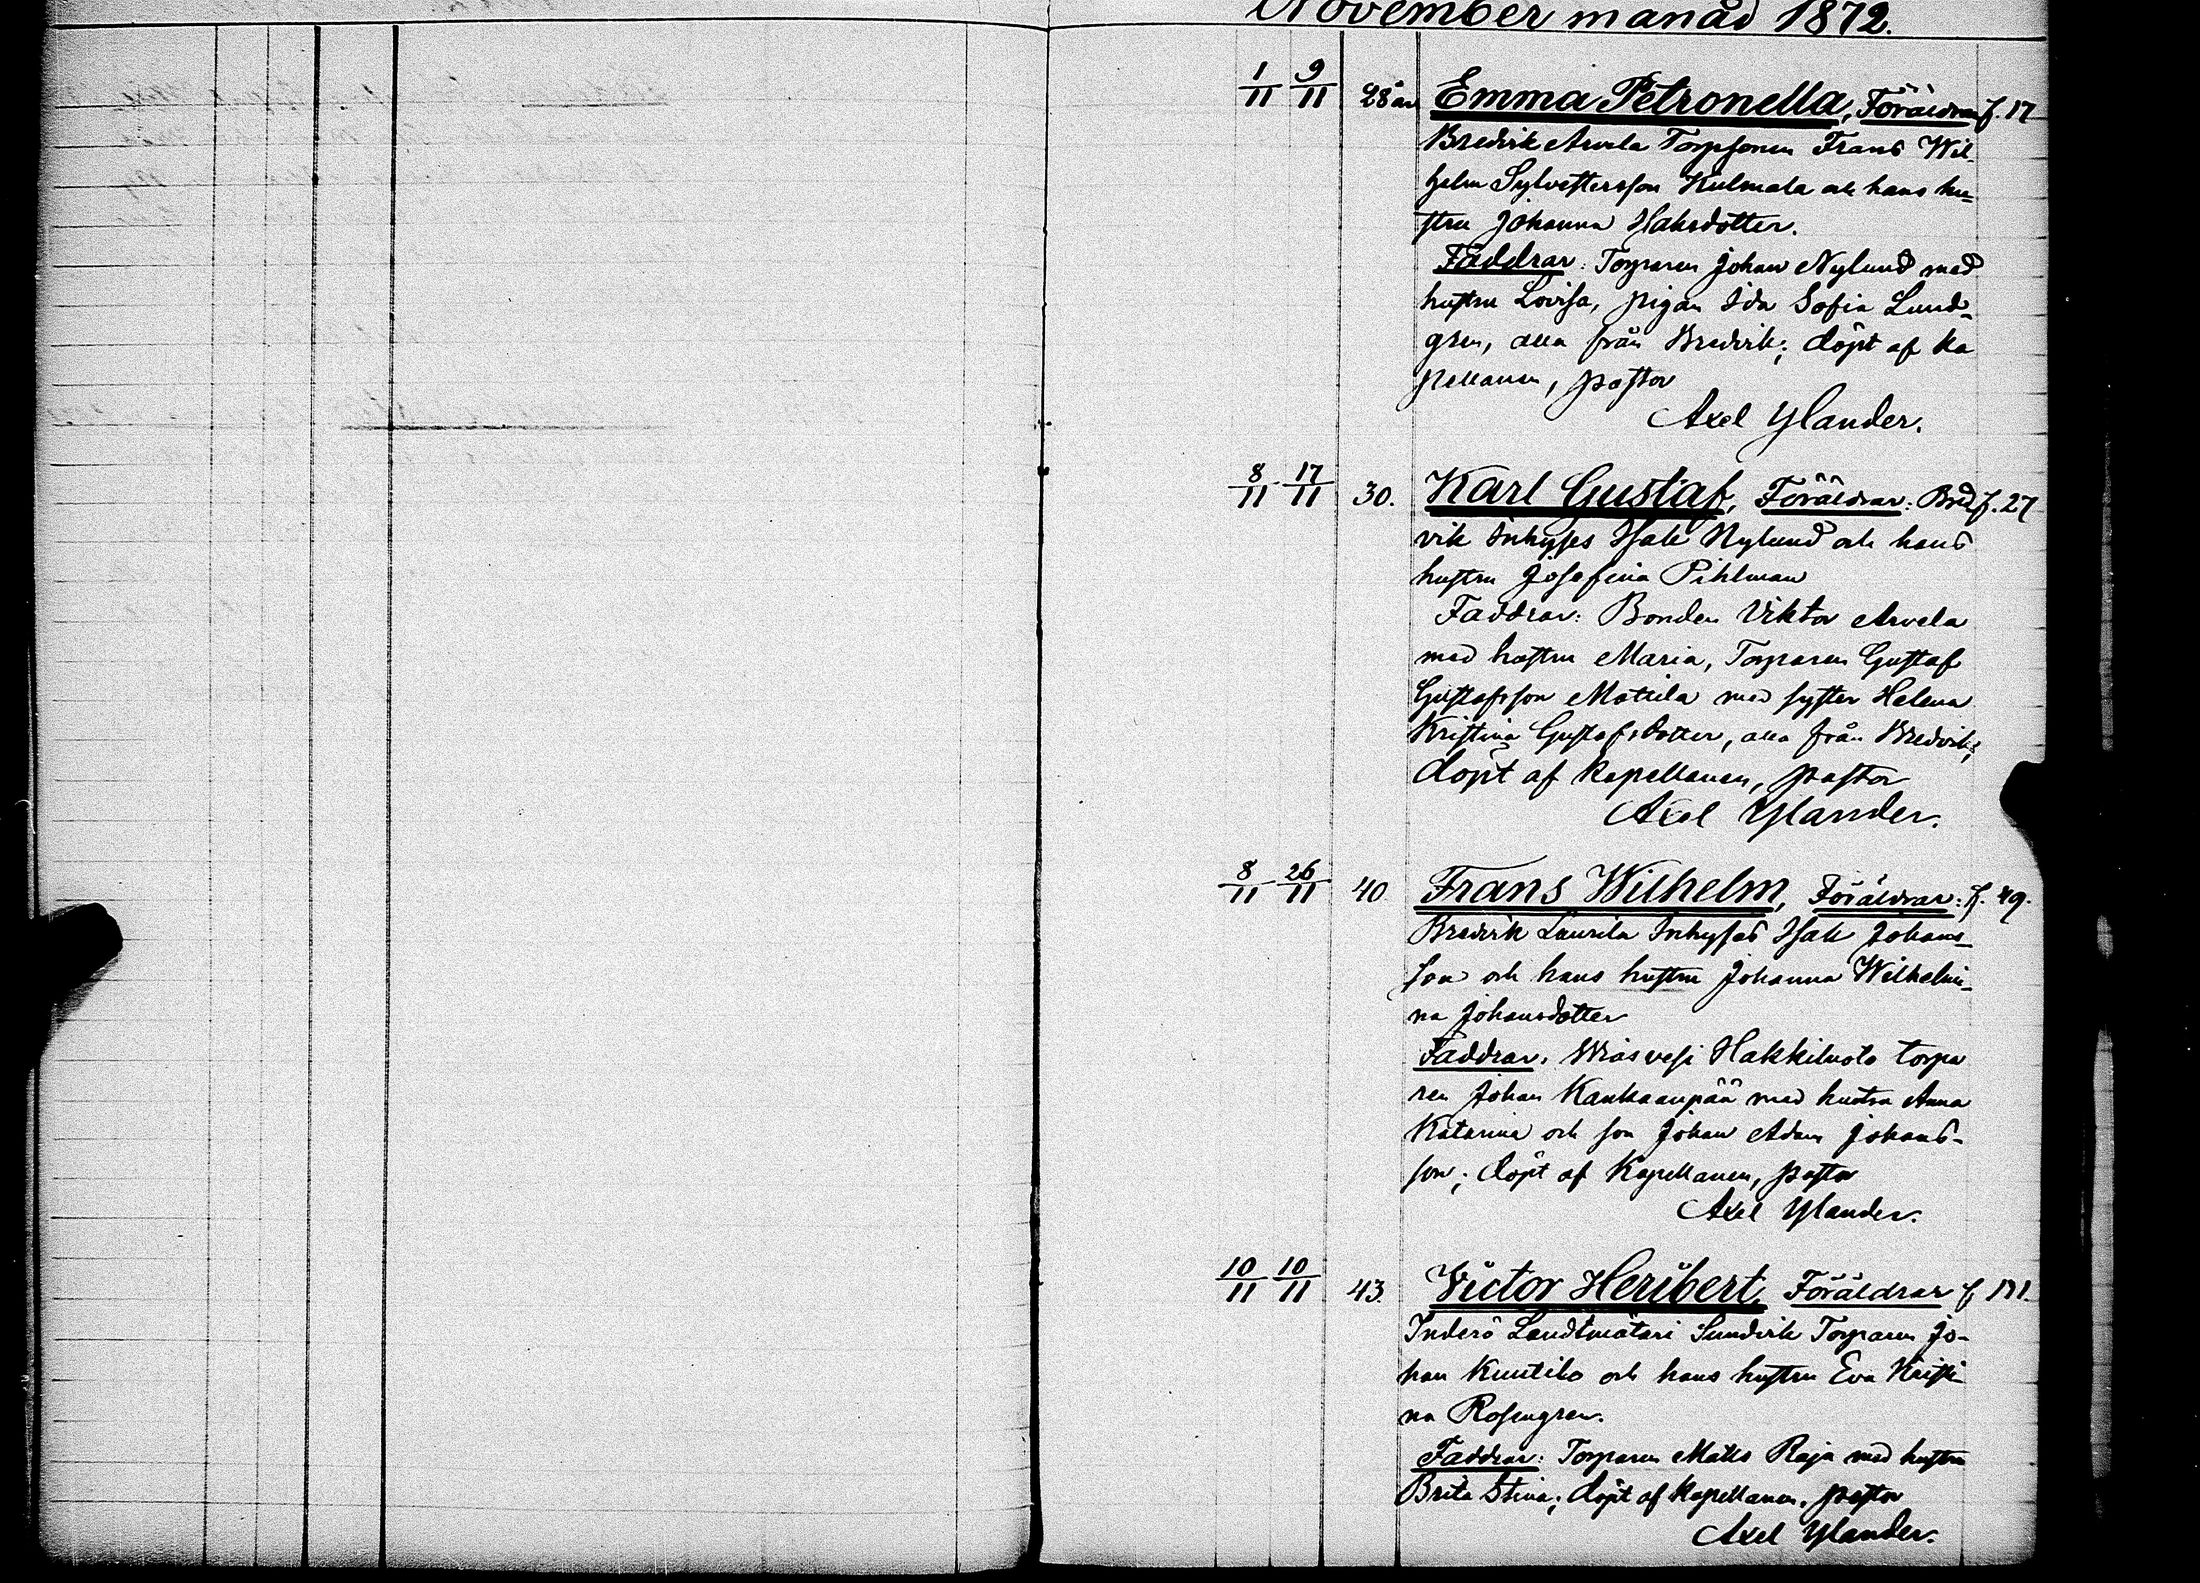 November månad 1872.
1/11 9/11 28 år Emma Petronella, Föräldrar f. 17
Bredvik Arvela Torpsonen Frans Wil-
helm Sylvestersson Kulmala och hans hu-
stru Johanna Isaksdotter.
Faddrar: Torparen Johan Nylund med
hustru Lovisa, pigan Ida Sofia Lund-
gren, alla från Bredvik; döpt af ka
pellanen, pastor
Axel Ylander.
8/11 17/11 30. Karl Gustaf, Föräldrar: Bred f. 27
vik Inhyses Isak Nylund och hans
hustru Josefina Pihlman
Faddrar: Bonden Viktor Arvela
med hustru Maria, Torparen Gustaf
Gustafsson Mattila med syster Helena
Kristina Gustafsdotter, alla från Bredvik;
döpt af kapellanen, pastor
Axel Ylander.
8/11 26/11 40. Frans Wilhelm, Föräldrar: f. 49.
Bredvik Laurila Inhyses Isak Johans-
son och hans hustru Johanna Wilhelmi-
na Johansdotter
Faddrar. Wiasvesi Hakkiluoto torpa
ren Johan Kankaanpää med hustru Anna
Katarina och son Johan Adam Johans-
son; döpt af Kapellanen, pastor
Axel Ylander.
10/11 10/11 43. Victor Heribert, Föräldrar f 191.
Inderö Landtmätari Sundvik Torparen Jo-
han Kuutilo och hans hustru Eva Kristi-
na Rosengren.
Faddrar: Torparen Matts Raja med hustru
Brita Stina; döpt af kapellanen, pastor
Axel Ylander.